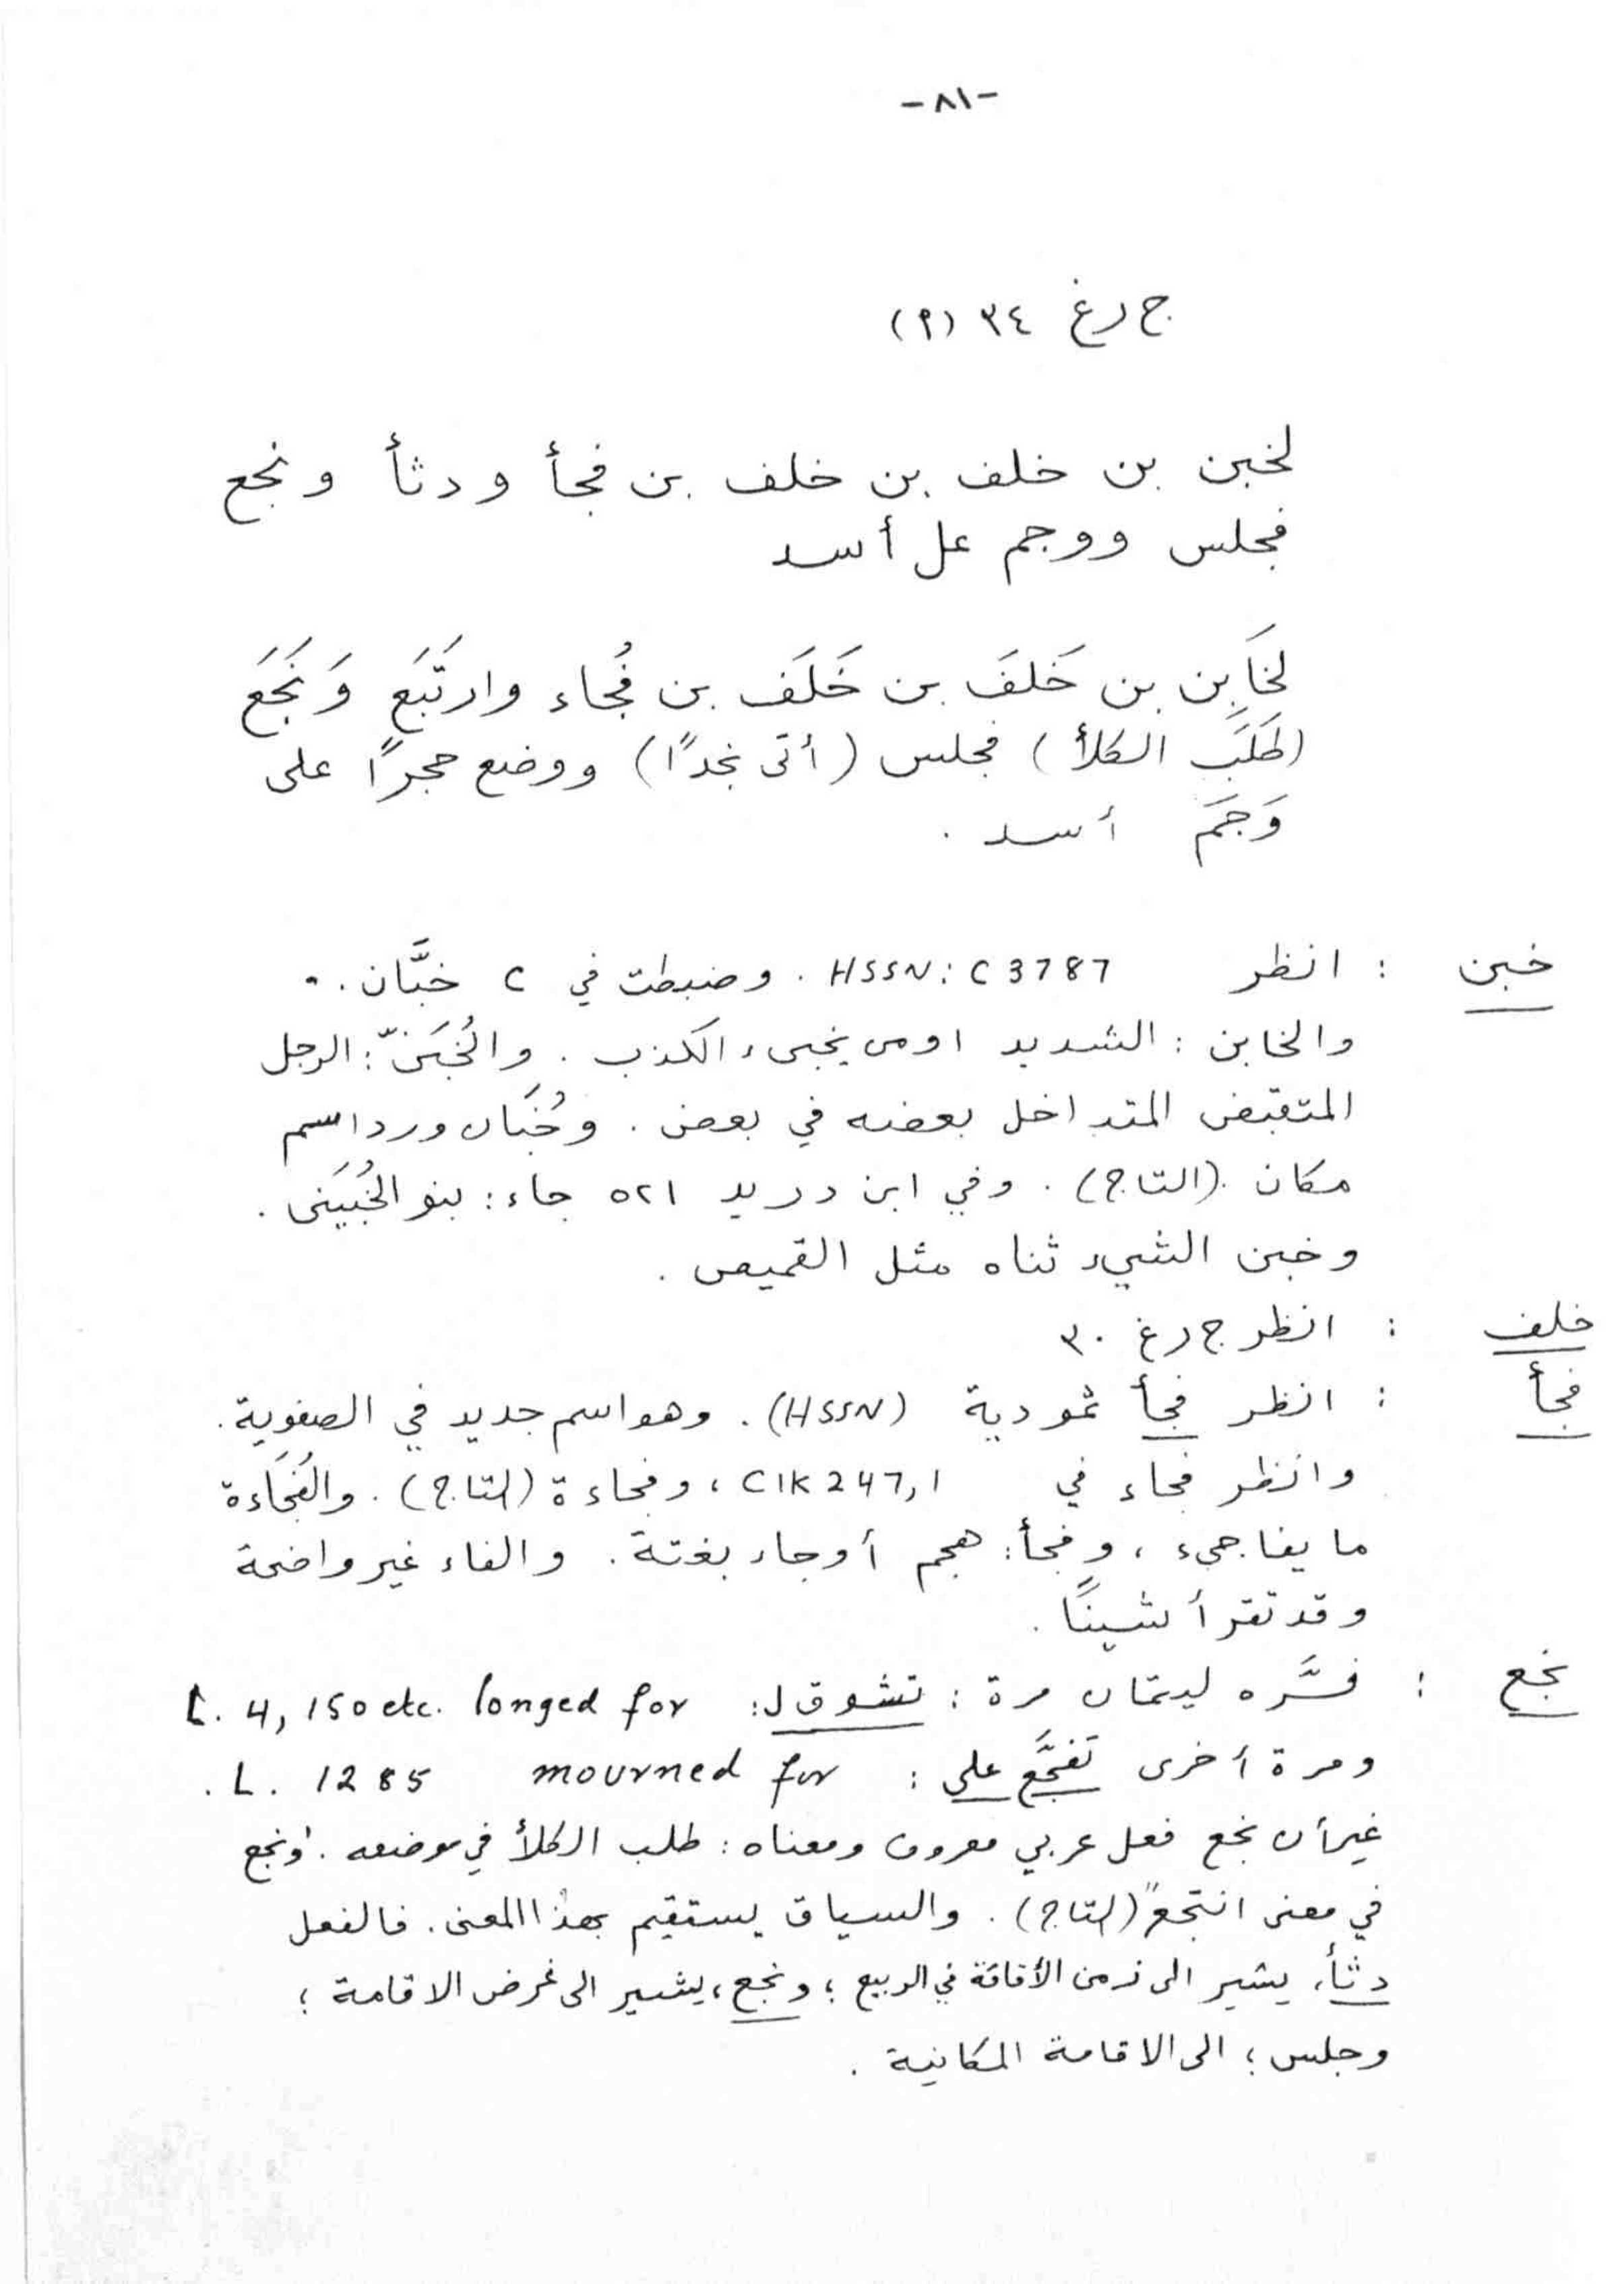 -٨١-
ج رغ ٣٤ (٩)
لخبن بن خلف بن خلف بن فجأ ودثأ ونجع
فجلس ووجم عل أسد
لخَابِن بن خَلَفَ بن خَلَف بن فُجاء وارتَبَع وَنَجَعَ
(طَلَبَ الكلأ) فجلس (أتى نجدًا) ووضع حجرًا على
وَجَمَ أسد .
خبن : انظر HSSN: C 3787 . وضبطت في C خبَّان .
والخابن : الشديد او من يخبىء الكذب . والخُبَنّ : الرجل
المتقبض المتداخل بعضه في بعض . وخُبَان ورد اسم
مكان (التاج) . وفي ابن دريد ٥٢١ جاء : بنو الخُبَينى .
وخبن الشيء ثناه مثل القميص .
خلف : انظر ج رغ ٣٠
فجأ : انظر فجأ ثمودية (HSSN) . وهو اسم جديد في الصفوية .
وانظر فجاء في CIK 247,1 ، وفجاءة (التاج) . والفُجَاءة
ما يفاجىء ، وفجأ : هجم أوجاء بغتة . والفاء غير واضحة
وقد تقرأ شينًا .
نجع : فسَّره ليتمّان مرة : تشوق ل : L. 4, 150 etc. longed for
ومرة أخرى تفجَّع على : L. 1285 mourned for .
غير أن نجع فعل عربي معروف ومعناه : طلب الكلأ في موضعه . "ونجع
في معنى انتجع" (التاج) . والسياق يستقيم بهذا المعنى . فالفعل
دثأ، يشير الى زمن الأقاقة في الربيع ؛ ونجع ، يشير الى غرض الاقامة ؛
وجلس ؛ الى الاقامة المكانية .